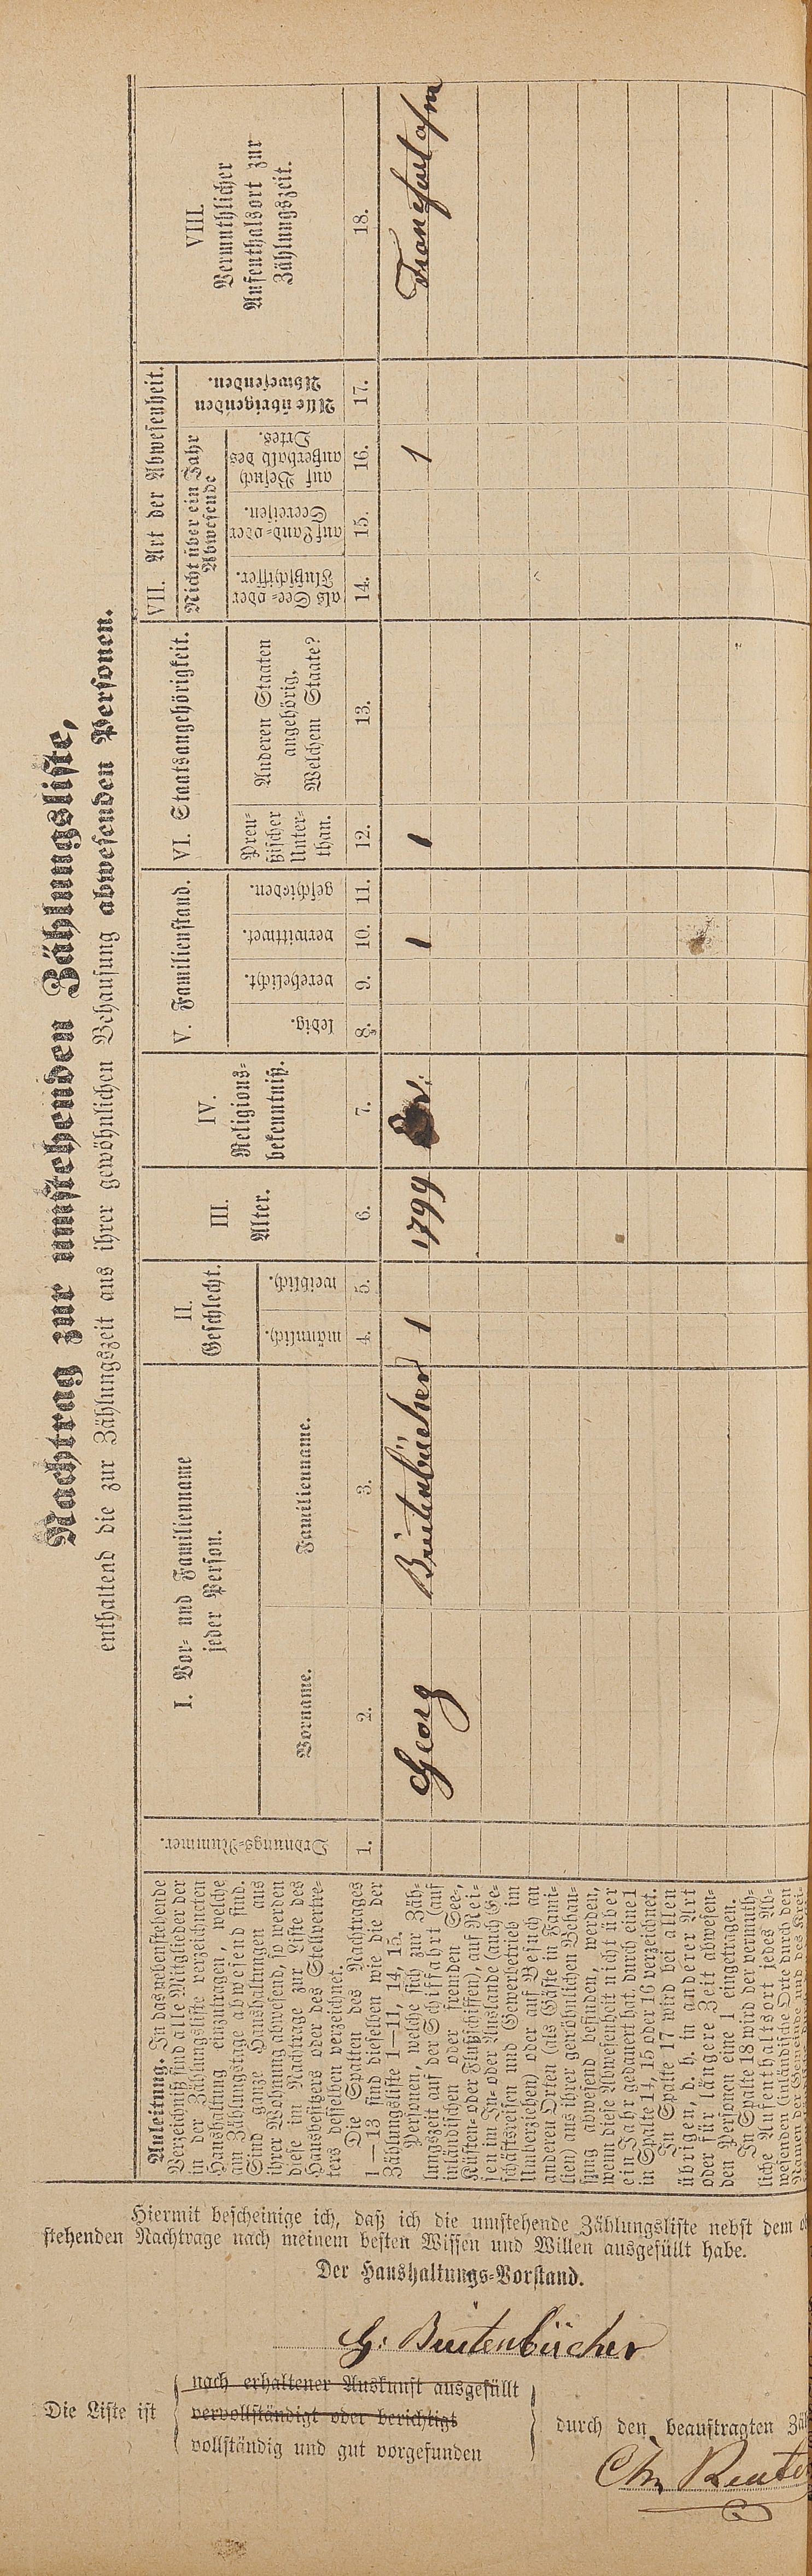 Nachtrag zur umstehenden Zählungsliste,
enthaltend die zur Zählungszeit aus ihrer gewöhnlichen Behausung abwesenden Personen.
Anleitung. In das nebenstehende
Verzeichniß sind alle Mitglieder der
in der Zählungsliste verzeichneten
Haushaltung einzutragen, welche
am Zählungstage abwesend sind.
Sind ganze Haushaltungen aus
ihrer Wohnung abwesend, so werden
diese im Nachtrage zur Liste des
Hausbesitzers oder des Stellvertre-
ters desselben verzeichnet.
Die Spalten des Nachtrages
1—13 sind dieselben wie die der
Zählungsliste 1—11, 14, 15.
Personen, welche sich zur Zäh-
lungszeit auf der Schiffahrt (auf
inländischen oder fremden See-,
Küsten- oder Flußschiffen), auf Rei-
sen im In- oder Auslande (auch Ge-
schäftsreisen und Gewerbetrieb im
Umherziehen) oder auf Besuch an
anderen Orten (als Gäste in Fami-
lien) aus ihrer gewöhnlichen Behau-
sung abwesend befinden, werden,
wenn diese Abwesenheit nicht über
ein Jahr gedauert hat, durch eine 1
in Spalte 14, 15 oder 16 verzeichnet.
In Spalte 17 wird bei allen
übrigen, d. h. in anderer Art
oder für längere Zeit abwesen-
den Personen eine 1 eingetragen.
In Spalte 18 wird der vermuth-
liche Aufenthaltsort jedes Ab-
wesenden (inländische Orte durch den
Namen der Gemeinde und des Krei-
Ordnungs-Nummer.
1.
I. Vor- und Familienname
jeder Person.
Vorname.
2.
Familienname.
3.
II.
Geschlecht.
männlich.
4.
weiblich.
5.
III.
Alter.
6.
IV.
Religions-
bekenntniß.
7.
V. Familienstand.
ledig.
8.
verehelicht.
9.
verwittwet.
10.
geschieden.
11.
VI. Staatsangehörigkeit.
Preu-
ßischer
Unter-
than.
12.
Anderen Staaten
angehörig.
Welchem Staate?
13.
VII. Art der Abwesenheit.
Nicht über ein Jahr
Abwesende
als See- oder
Flußschiffer.
14.
auf Land- oder
Seereisen.
15.
auf Besuch
außerhalb des
Ortes.
16.
Alle übrigen
Abwesenden.
17.
VIII.
Vermuthlicher
Aufenthalsort zur
Zählungszeit.
18.
Georg Breitenbücher 1 1799 Ev. 1 1 1 Francfurt a/m
Hiermit bescheinige ich, daß ich die umstehende Zählungsliste nebst dem
stehenden Nachtrage nach meinem besten Wissen und Willen ausgefüllt habe.
Der Haushaltungs-Vorstand.
G. Breitenbücher
Die Liste ist
nach erhaltener Auskunft ausgefüllt
vervollständigt oder berichtigt
vollständig und gut vorgefunden
durch den beauftragten